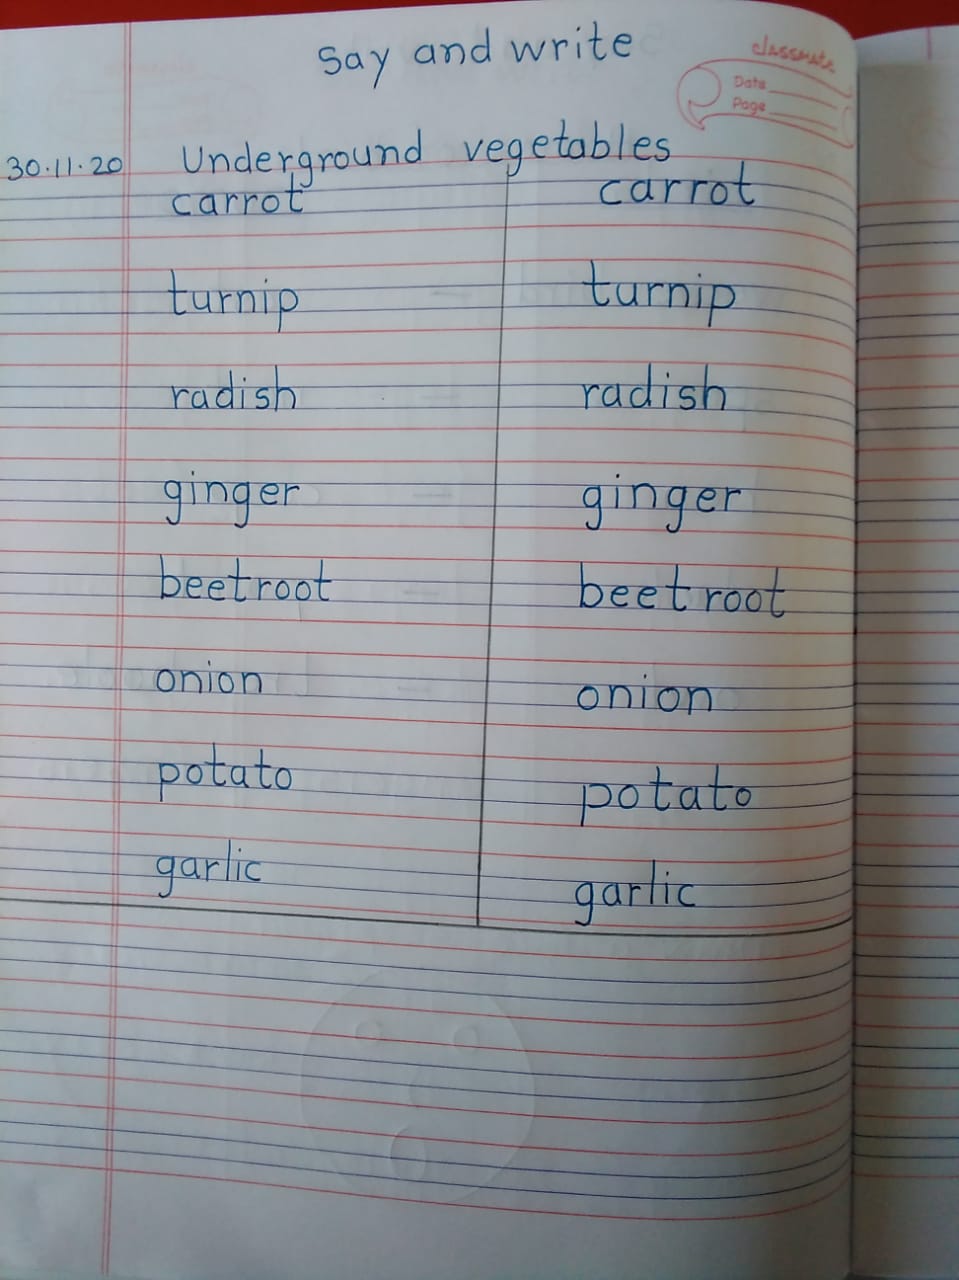 say and write
classmate
Date
Page
30.11.20 Underground vegetables
carrot carrot
turnip turnip
radish radish
ginger ginger
beetroot beetroot
onion onion
potato potato
garlic garlic